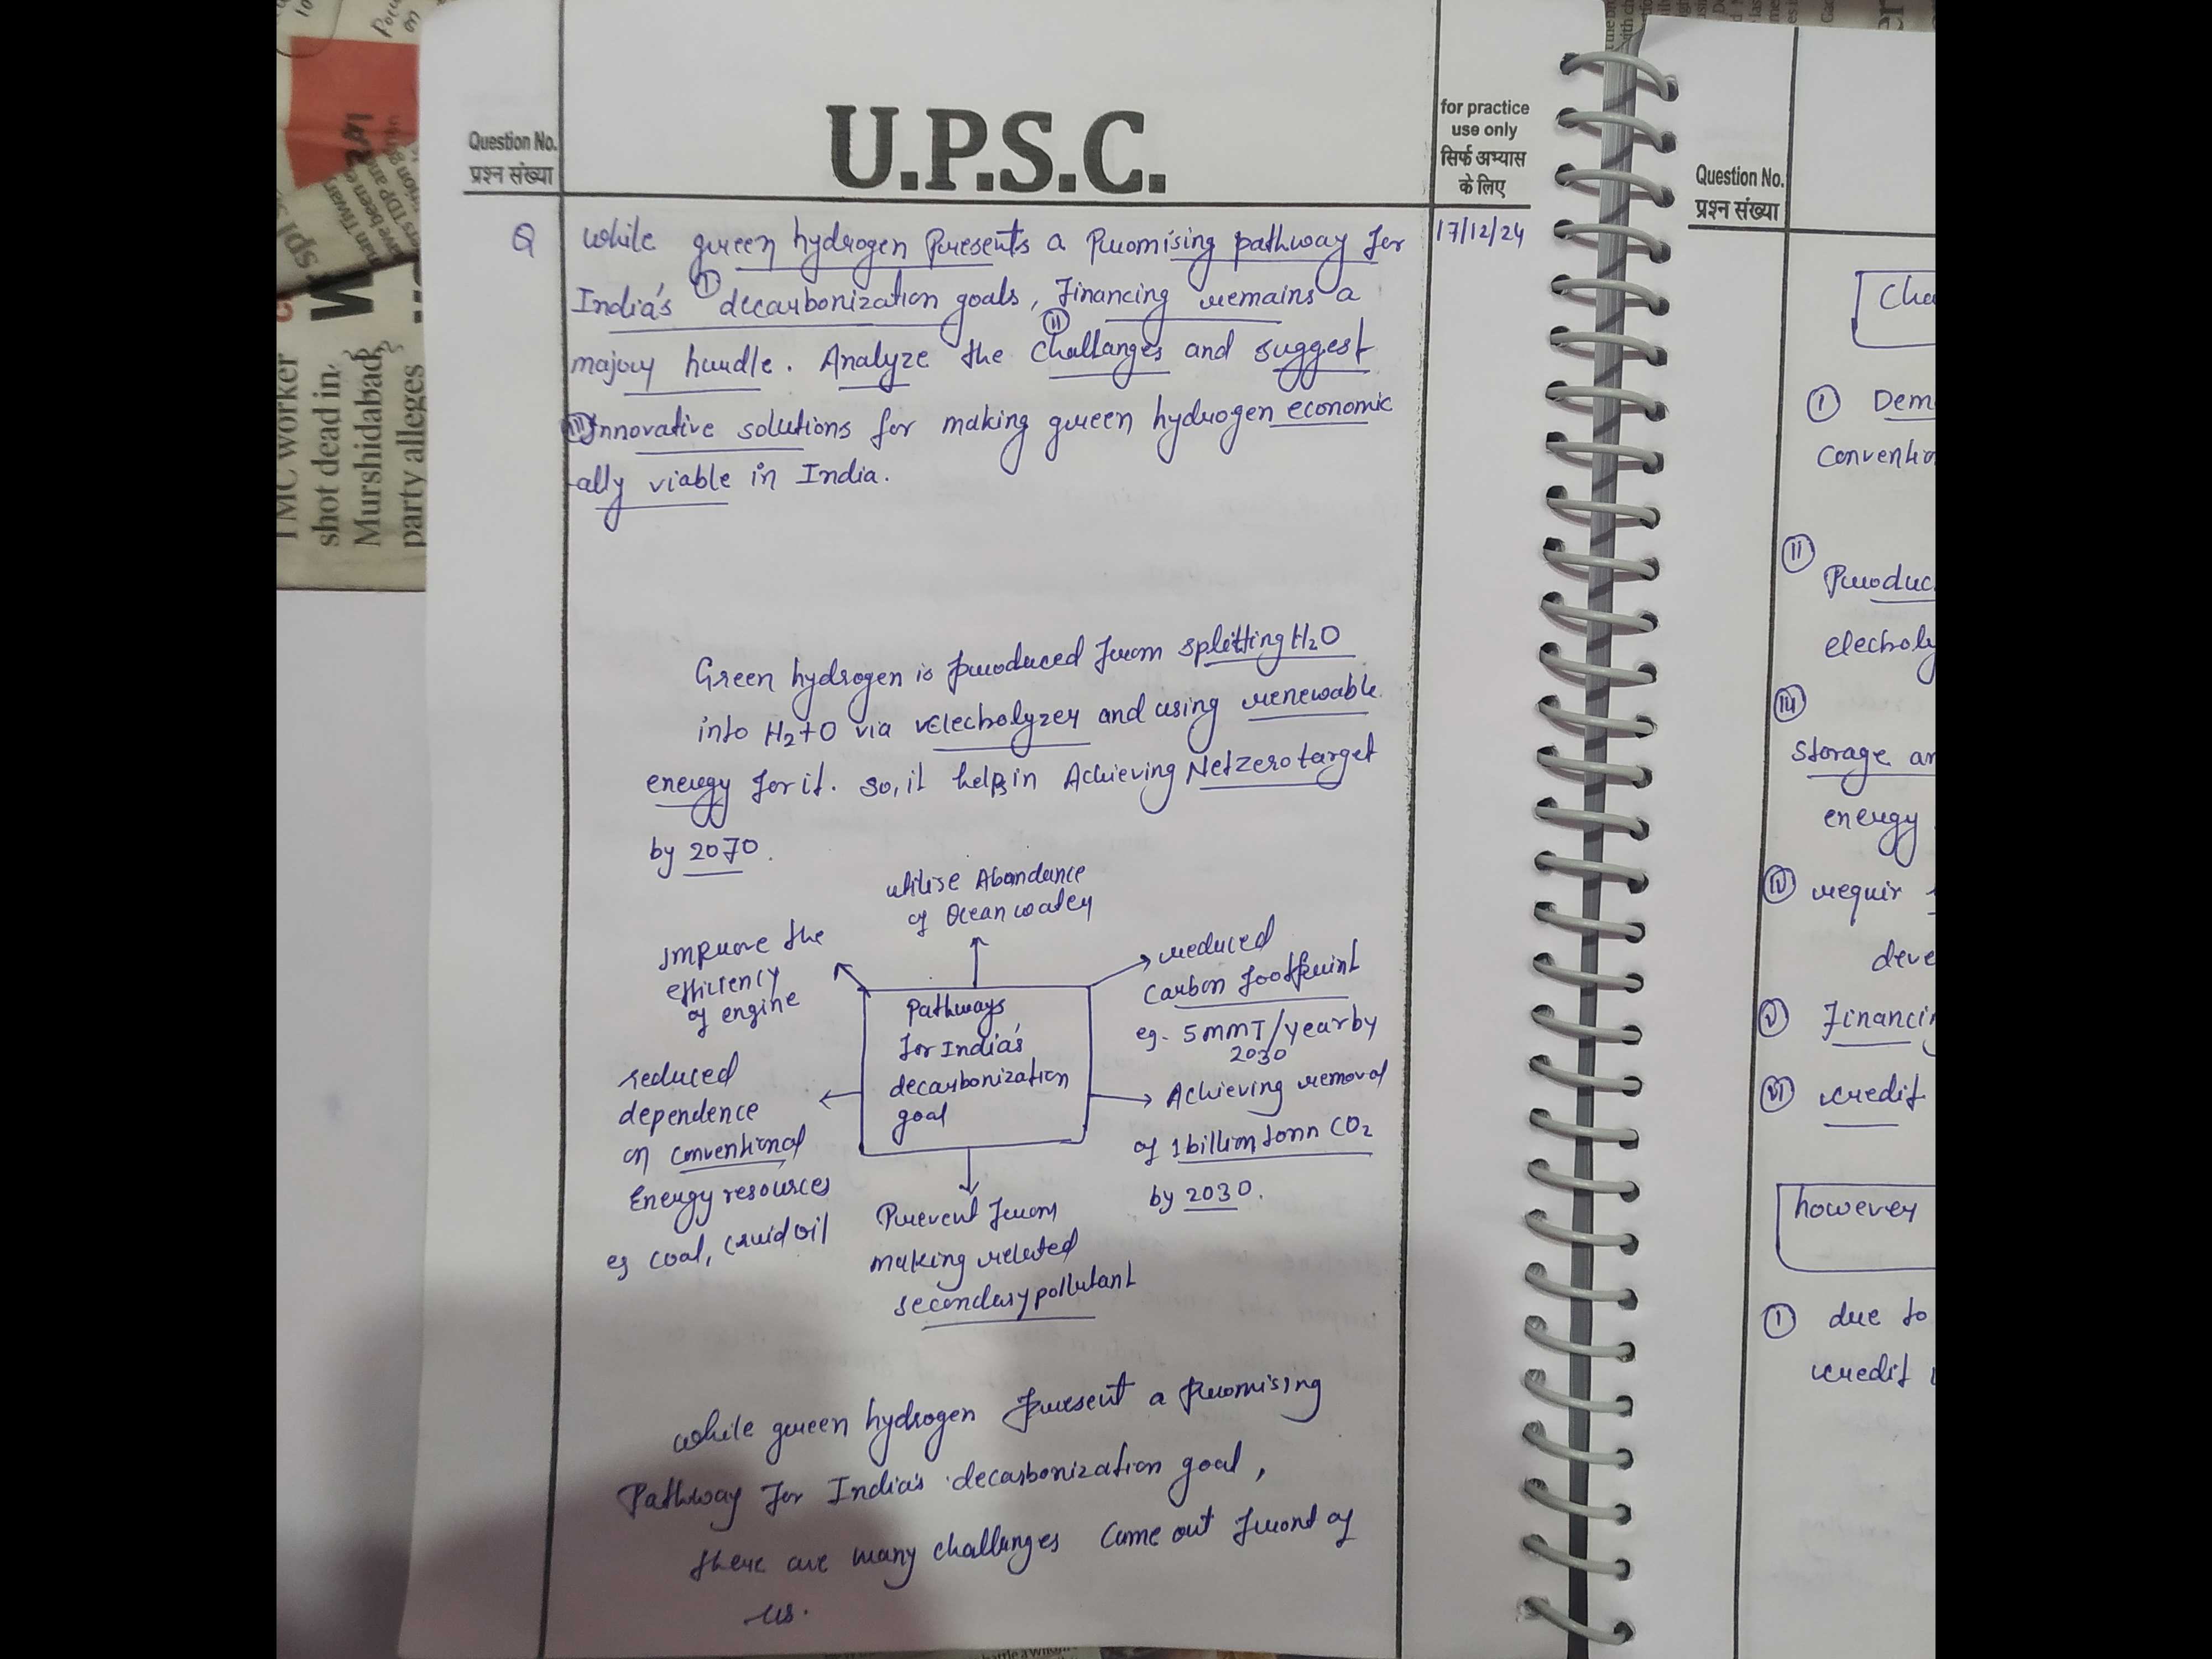 TMC worker
shot dead in
Murshidabad,
party alleges
Question No.
प्रश्न संख्या
U.P.S.C.
for practice
use only
सिर्फ अभ्यास
के लिए
17/12/24
Q While green hydrogen Presents a Promising pathway for
India's decarbonization goals, Financing remains a
major hurdle. Analyze the challanges and suggest
Innovative solutions for making green hydrogen economic
ally viable in India.
Green hydrogen is produced from splitting H₂O
into H₂+O via electrolyzer and using renewable
energy for it. so, it helps in Achieving Netzero target
by 2070.
utilise Abondance
of Ocean water
Improve the
efficiency
of engine
reduced
Carbon footprint
eg. 5 mmT/year by
2030
Pathways
for India's
decarbonization
goal
reduced
dependence
on conventional
Energy resources
eg coal, cruid oil
Achieving removal
of 1 billion tonn CO₂
by 2030.
Prevent from
making related
secondary pollutant
While green hydrogen present a promising
Pathway for India's decarbonization goal,
there are many challenges come out front of
us.
Question No.
प्रश्न संख्या
Cha
I Dem
Conventio
II Produc
electroly
III
Storage an
energy
IV requir
deve
V Financin
VI credit
however
I due to
credit